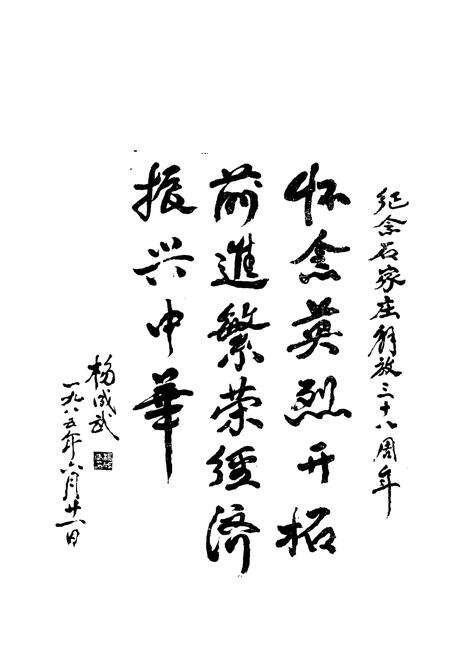 纪念石家庄解放三十八周年
怀念英烈开拓
前進繁荣經济
振兴中華
杨成武
一九八五年六月廿一日